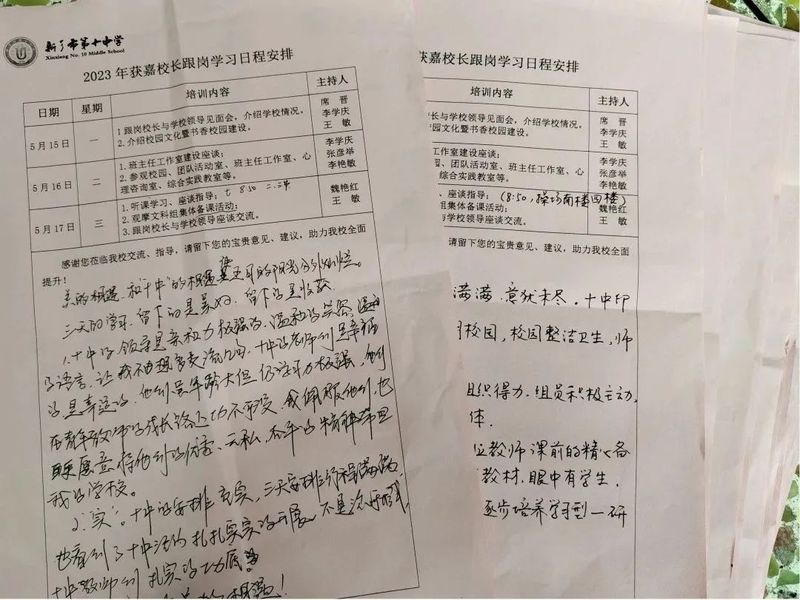 新乡市第十中学
Xinxiang No. 10 Middle School
2023年获嘉校长跟岗学习日程安排
日期 星期 培训内容 主持人
5月15日 一 1.跟岗校长与学校领导见面会，介绍学校情况， 席晋
2.介绍校园文化暨书香校园建设。 李学庆
王敏
5月16日 二 1.班主任工作室建设座谈； 李学庆
2.参观校园、团队活动室、班主任工作室、心 张彦举
理咨询室、综合实践教室等。 李艳敏
5月17日 三 1.听课学习、座谈指导； 8:50 魏艳红
2.观摩文科组集体备课活动； 王敏
3.跟岗校长与学校领导座谈交流。
感谢您莅临我校交流、指导，请留下您的宝贵意见、建议，助力我校全面
提升！
美的相遇，和"十中"的相遇 五月的阳光分外灿烂。
三天的学习，留下的是美好，留下的是收获。
1.十中的领导是亲和力极强的，温和的笑容，
的语言，让我不由想多交流几句，十中的老师们是幸福
的是幸运的，他们是年龄大但 学习力极强，他们
在青年教师的成长路上功不可没，我佩服他们，也
愿意将他们的 、无私、 的精神带回
我的学校。
2."实"。十中的安排充实，三天安排
也看到了十中活动扎扎实实的开展，不是
十中教师们扎实的功底。
相遇！
获嘉校长跟岗学习日程安排
培训内容 主持人
长与学校领导见面会，介绍学校情况， 席晋
园文化暨书香校园建设。 李学庆
王敏
工作室建设座谈； 李学庆
、团队活动室、班主任工作室、心 张彦举
、综合实践教室等。 李艳敏
、座谈指导；(8:50，操场南楼四楼) 魏艳红
组集体备课活动； 王敏
与学校领导座谈交流。
请留下您的宝贵意见、建议，助力我校全面
满满，意犹未尽。十中印
校园，校园整洁卫生，师
组织得力，组员积极主动，
体。
位教师课前的精心备
教材，眼中有学生，
逐步培养学习型—研